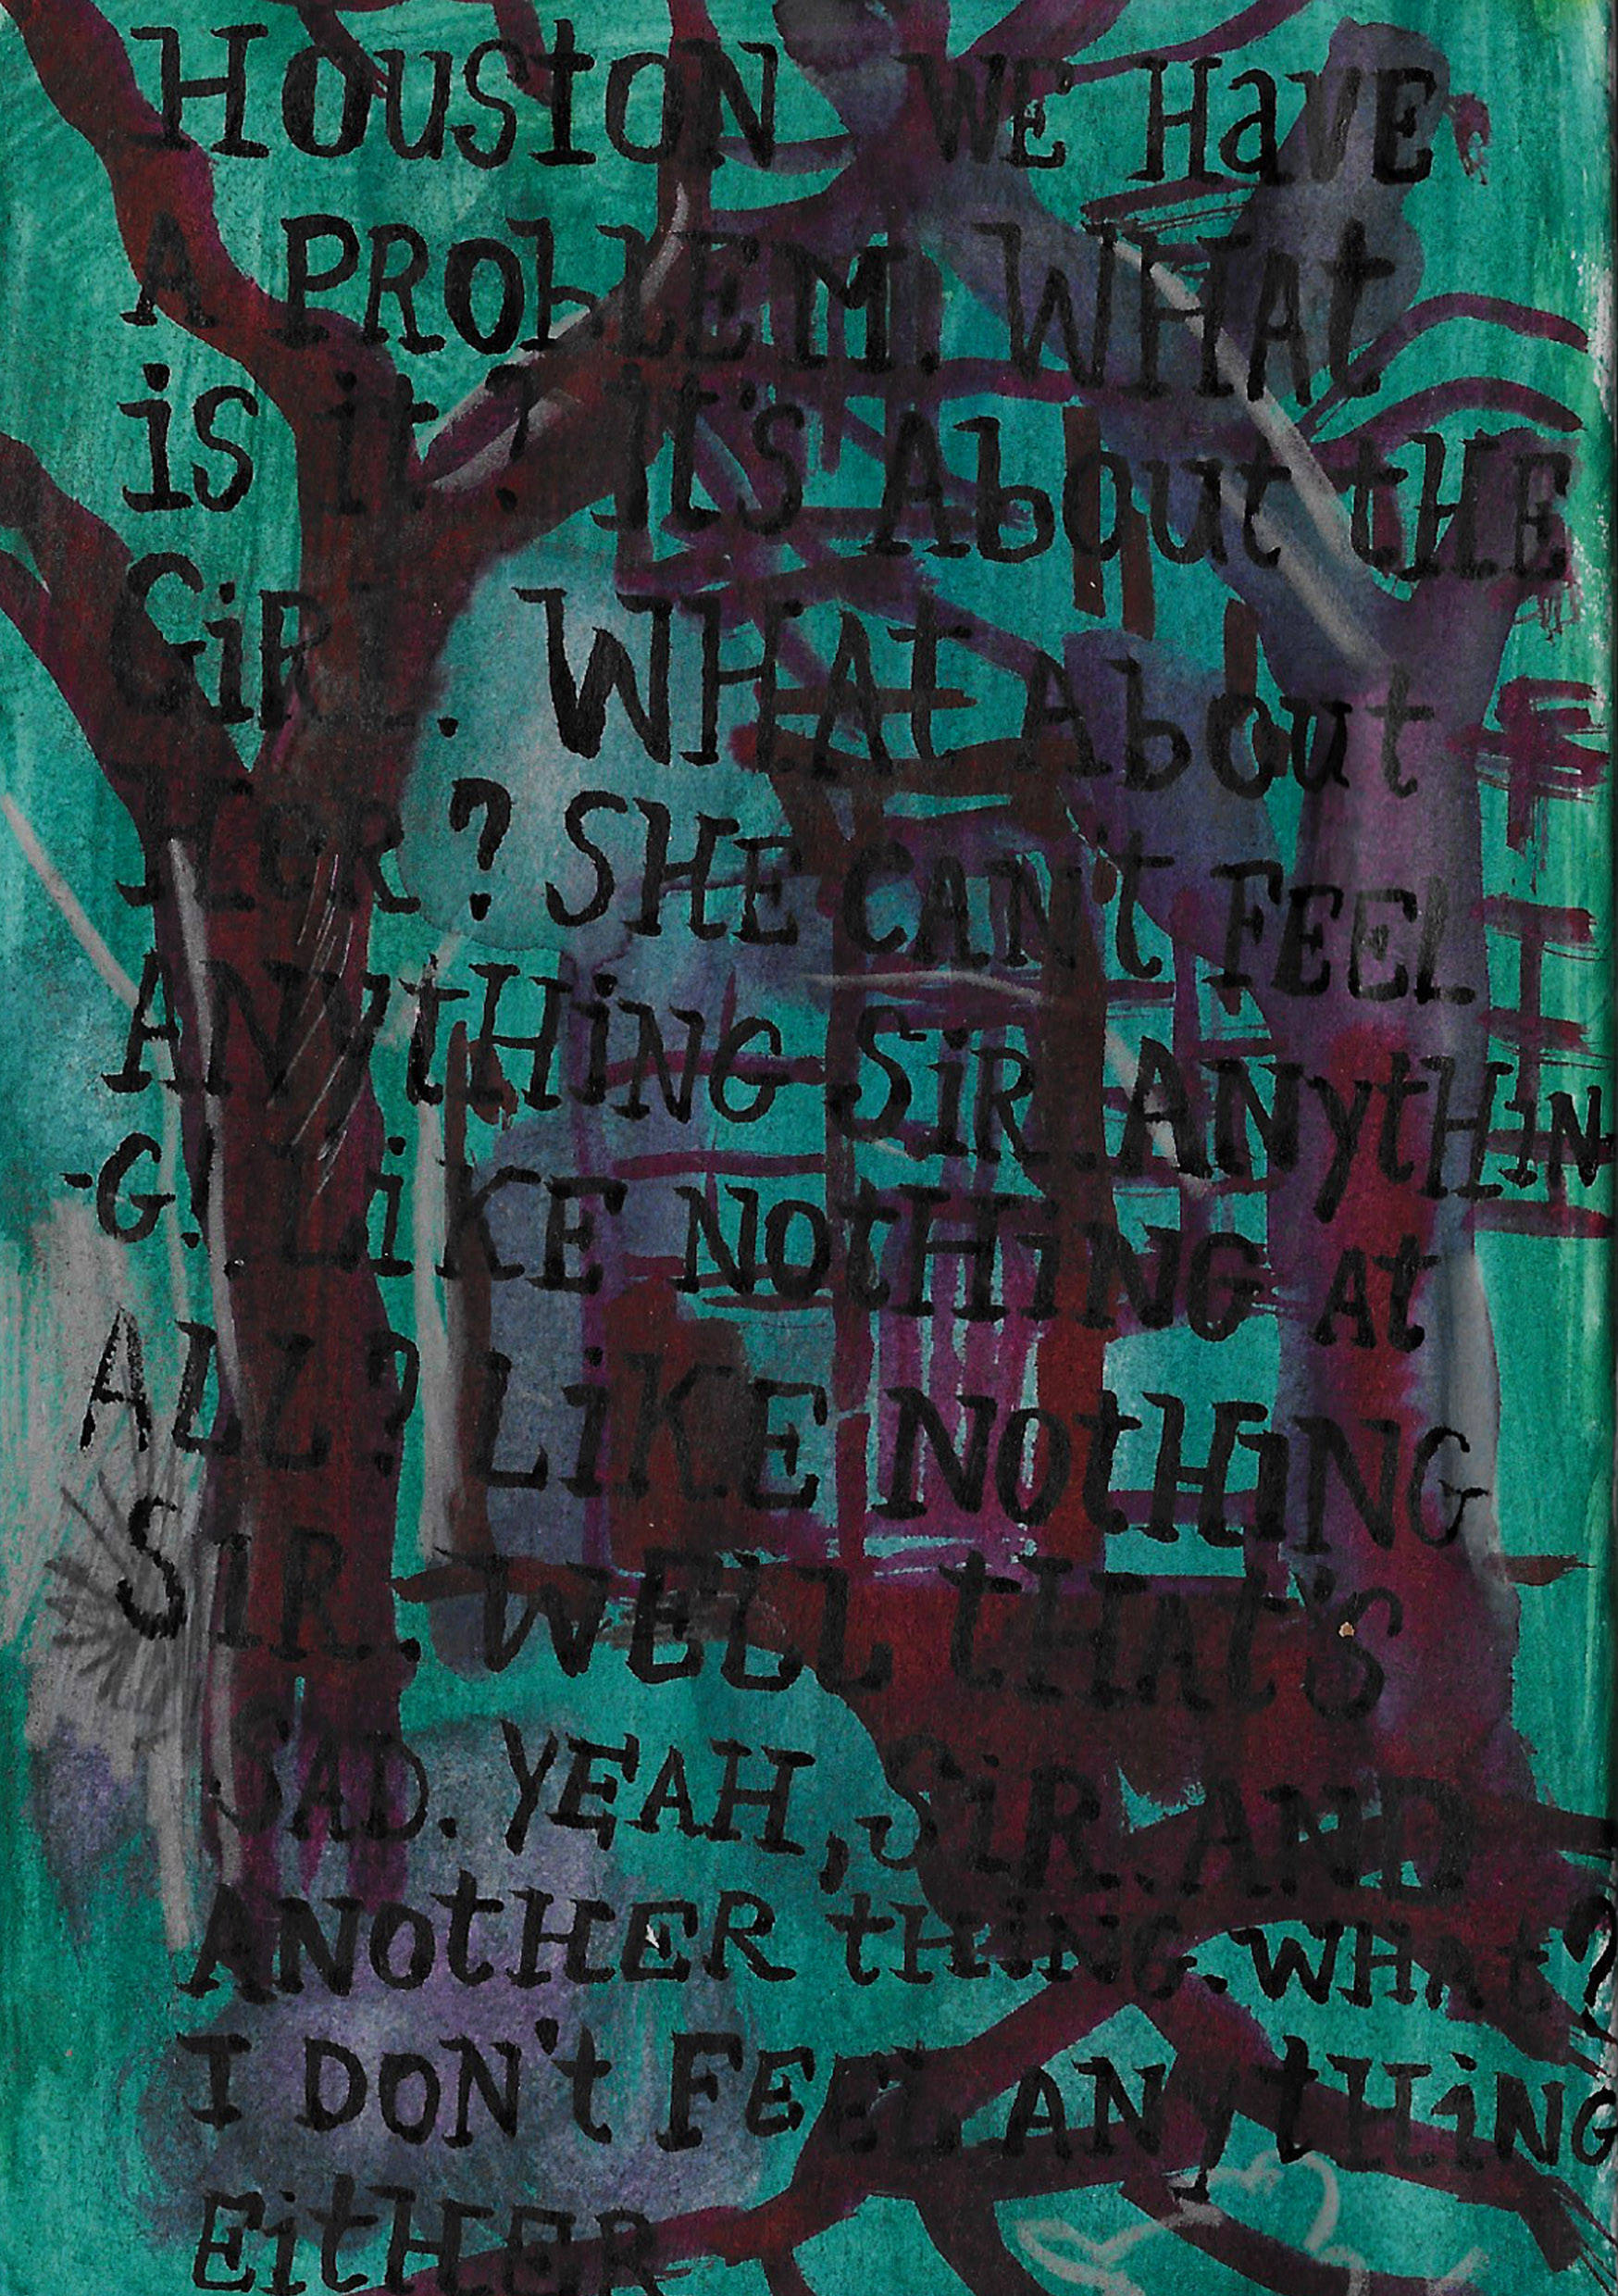 HOUStON WE HaVE
A PROblEM. WHAt
iS it? It'S AbOut tHE
GiRL. WHAt AbOut
HER? SHE CAN't FEEL
ANYtHiNG SiR. ANytHiN
-G! LiKE NOtHiNG At
ALL? LiKE NOtHiNG
SiR. WELL tHAt'S
SAD. YEAH, SiR. AND
ANOtHER tHiNG. WHAt?
I DON't FEEL ANYtHiNG
EitHER